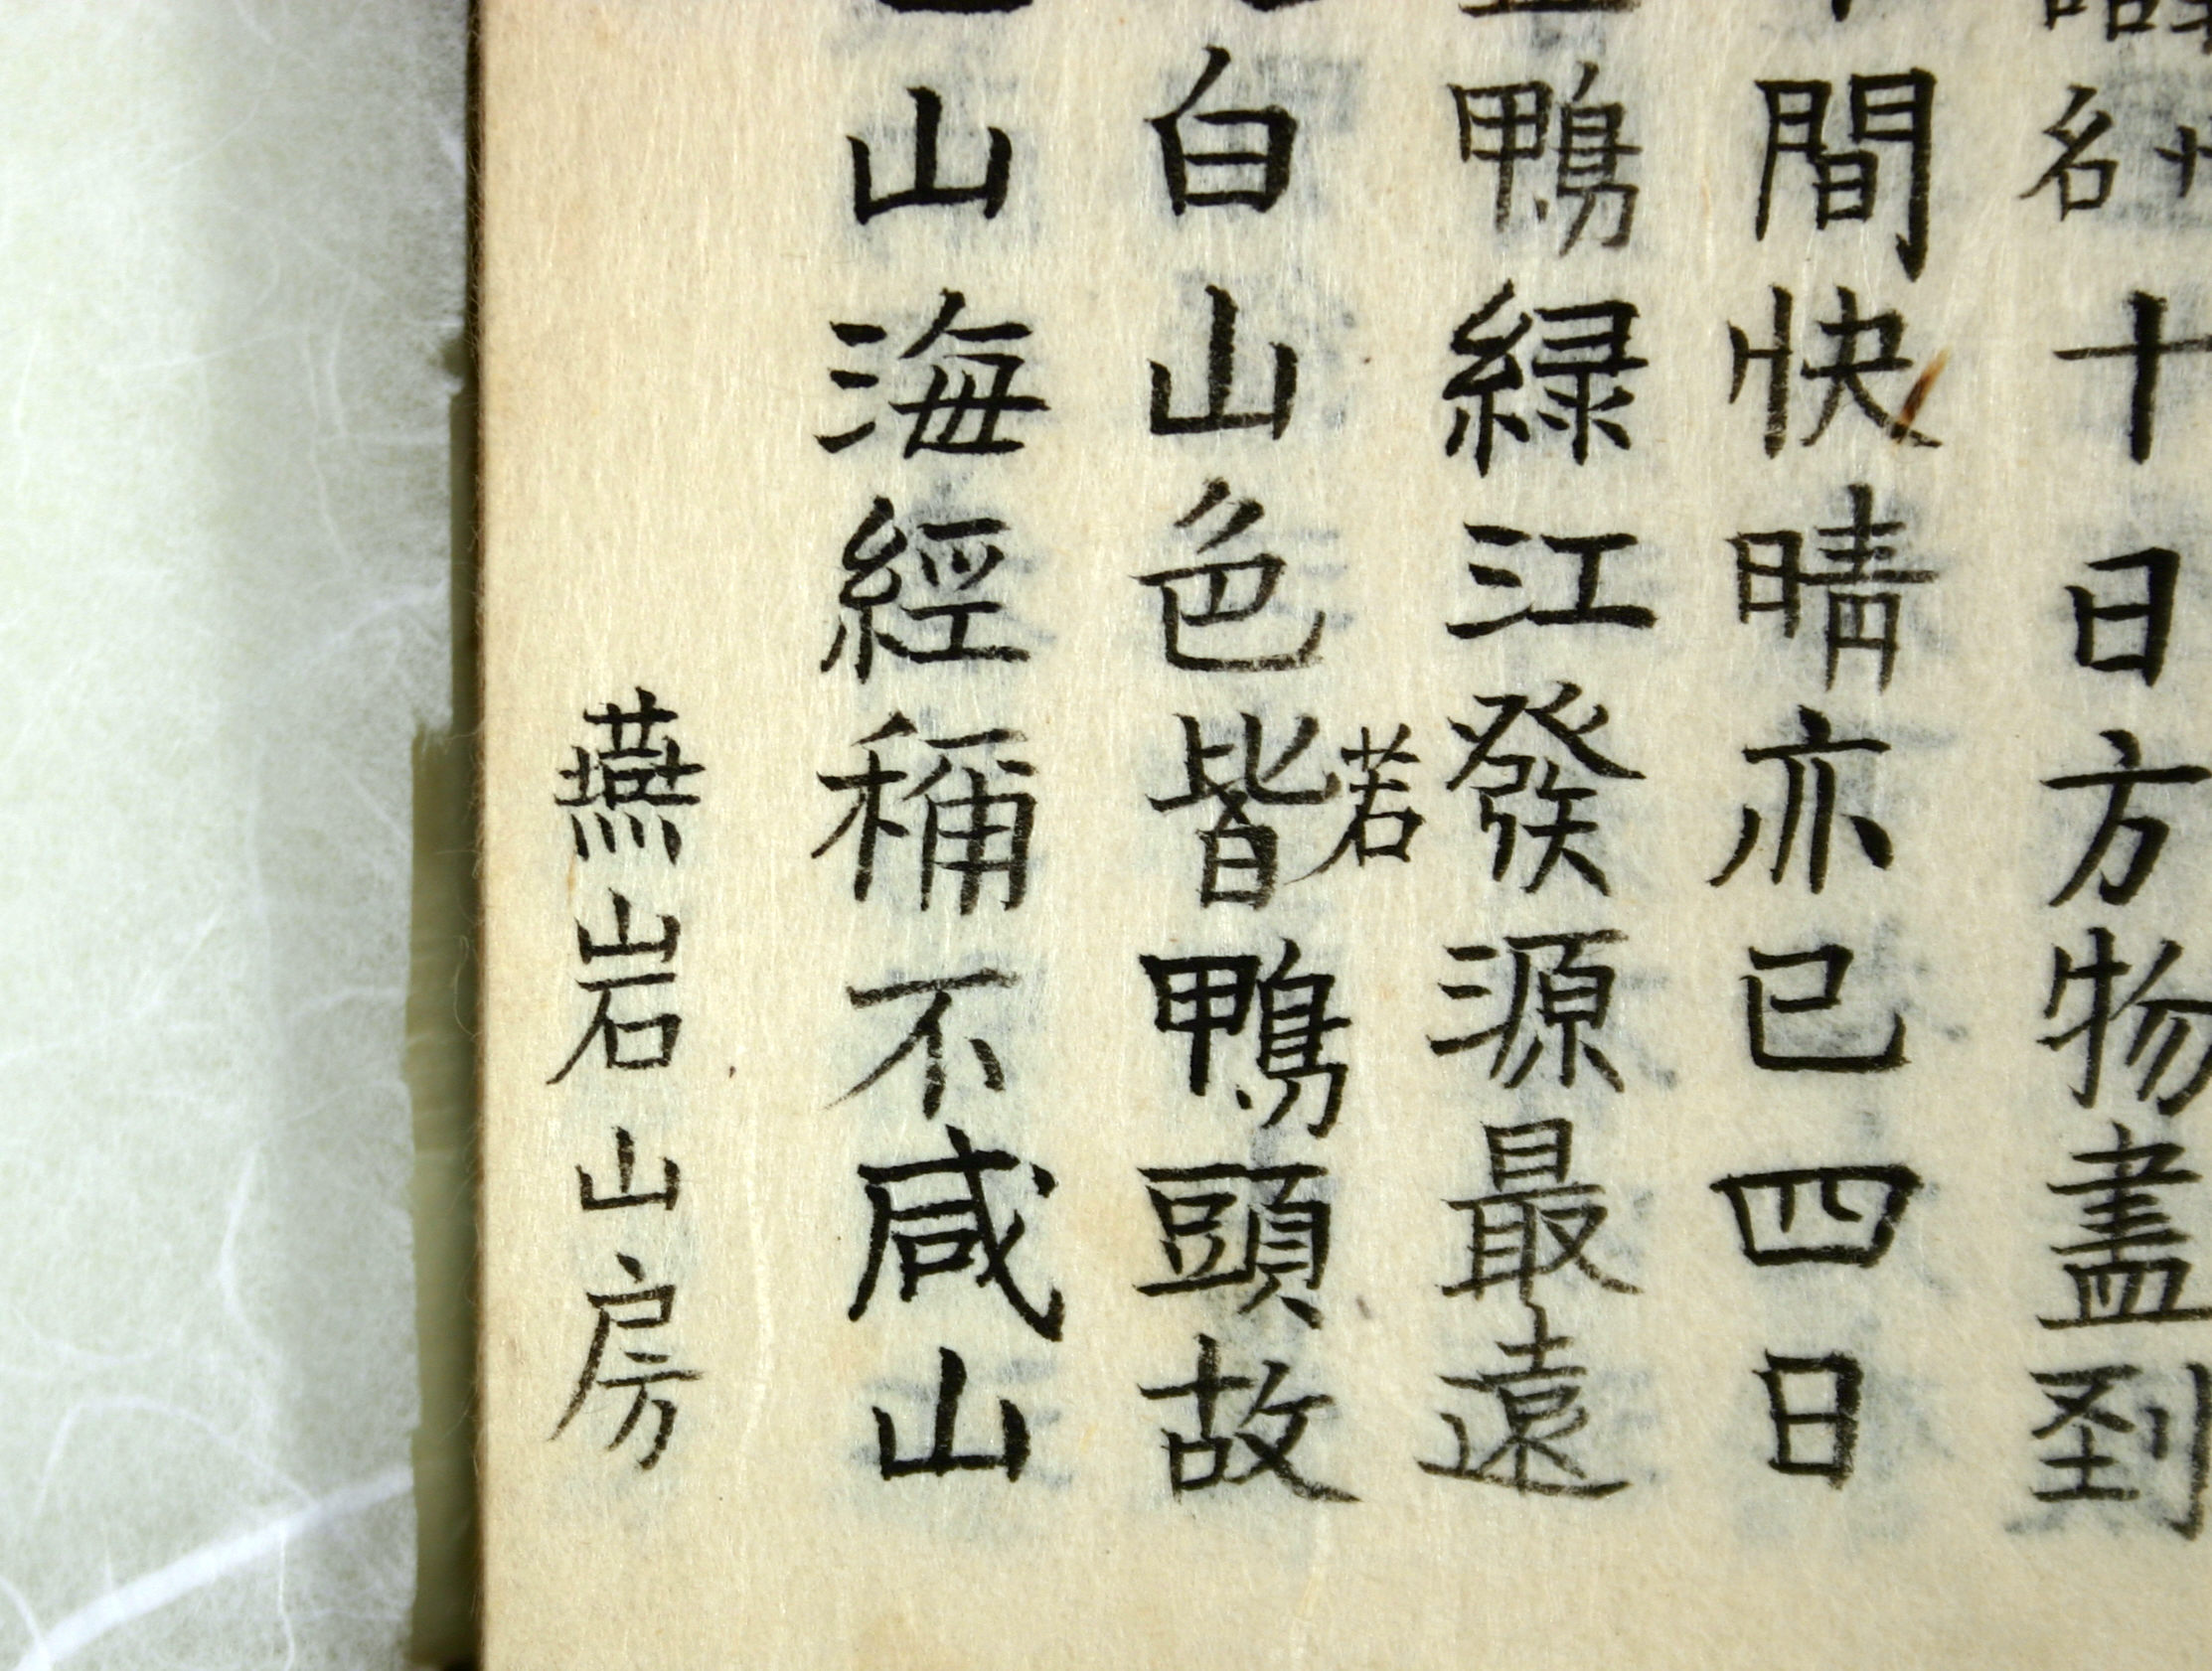 名十日方物盡到
間快晴亦已四日
鴨緑江發源最遠
若
白山色皆鴨頭故
山海經稱不咸山
燕岩山房